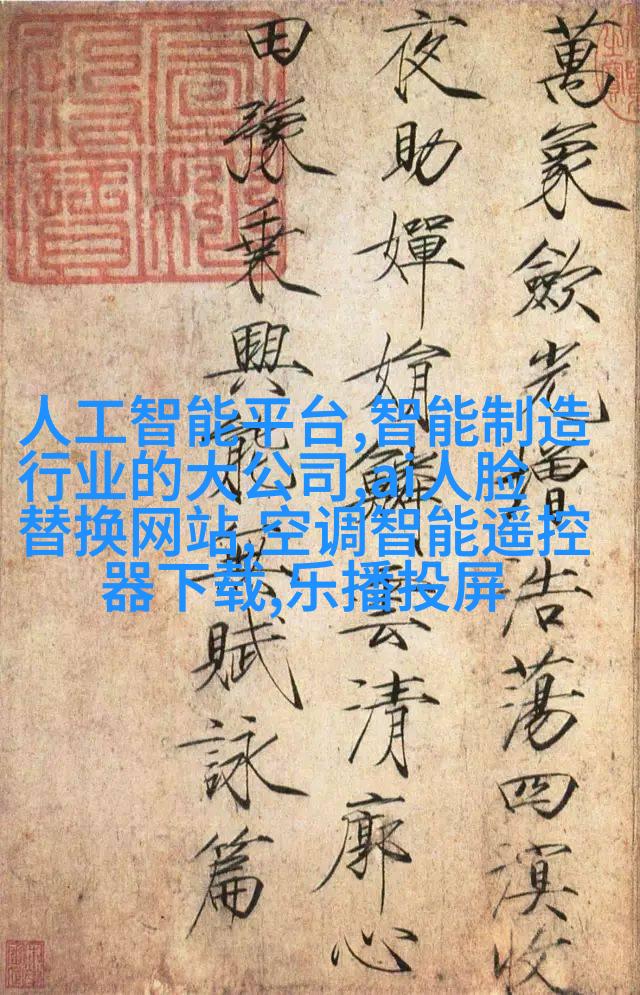 萬象歛光增浩蕩四溟收
夜助嬋娟鱗雲清廓心
田豫乗興能無賦詠篇
人工智能平台,智能制造
行业的大公司,ai人脸
替换网站,空调智能遥控
器下载,乐播投屏